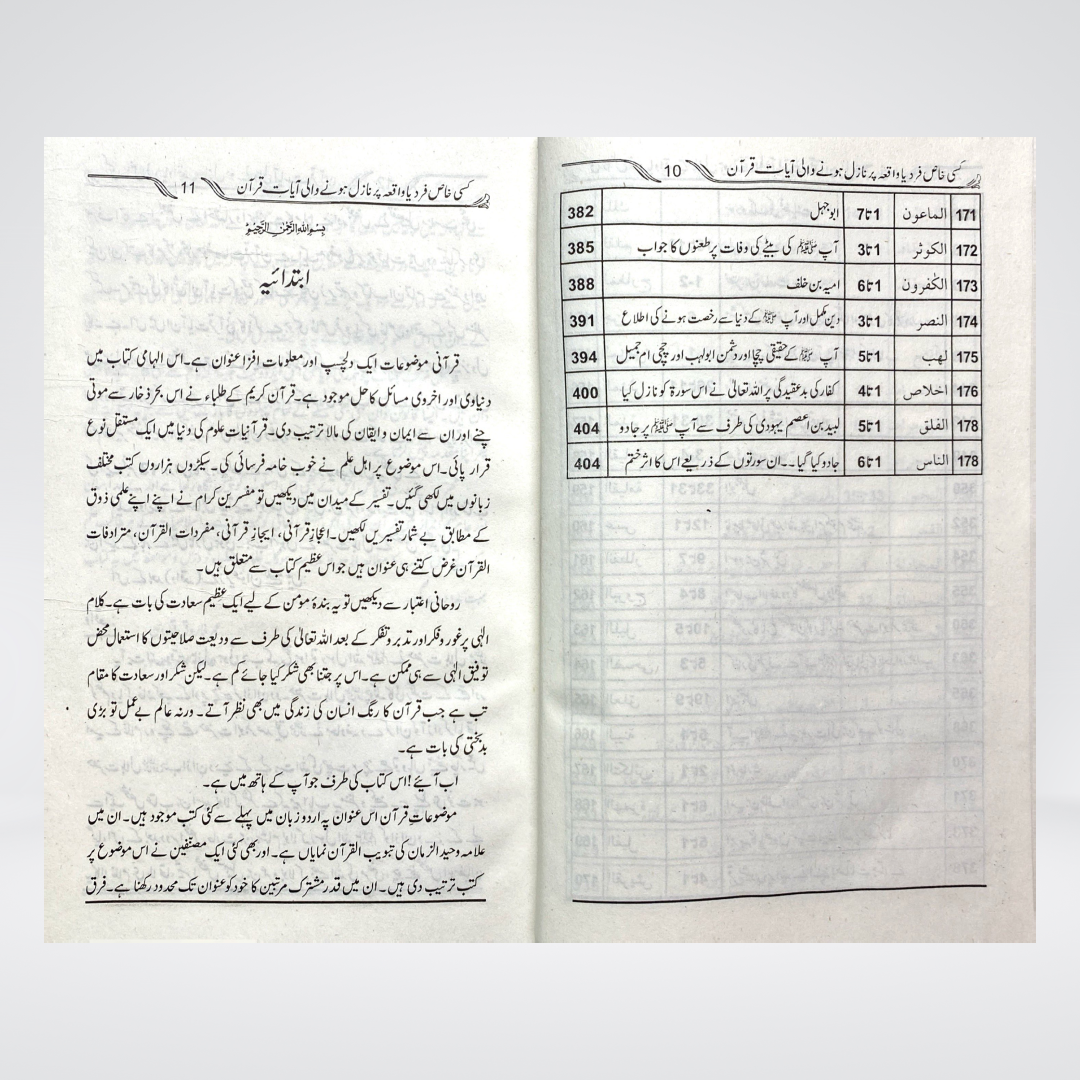 کسی خاص فرد یا واقعہ پر نازل ہونے والی آیات قرآن 10
171 الماعون 1 تا 7 ابوجہل 382
172 الکوثر 1 تا 3 آپ ﷺ کی بیٹے کی وفات پر طعنوں کا جواب 385
173 الکٰفرون 1 تا 6 امیہ بن خلف 388
174 النصر 1 تا 3 دین مکمل اور آپ ﷺ کے دنیا سے رخصت ہونے کی اطلاع 391
175 لھب 1 تا 5 آپ ﷺ کے حقیقی چچا اور دشمن ابولہب اور چچی ام جمیل 394
176 اخلاص 1 تا 4 کفار کی بدعقیدگی پر اللہ تعالیٰ نے اس سورۃ کو نازل کیا 400
178 الفلق 1 تا 5 لبید بن اعصم یہودی کی طرف سے آپ ﷺ پر جادو 404
178 الناس 1 تا 6 جادو کیا گیا۔۔ان سورتوں کے ذریعے اس کا اثر ختم 404
کسی خاص فرد یا واقعہ پر نازل ہونے والی آیات قرآن 11
بسم اللہ الرحمن الرحیم
ابتدائیہ
قرآنی موضوعات ایک دلچسپ اور معلومات افزا عنوان ہے۔اس الہامی کتاب میں
دنیاوی اور اخروی مسائل کا حل موجود ہے۔قرآن کریم کے طلباء نے اس بحر ذخار سے موتی
چنے اور ان سے ایمان و ایقان کی مالا ترتیب دی۔قرآنیات علوم کی دنیا میں ایک مستقل نوع
قرار پائی۔اس موضوع پر اہل علم نے خوب خامہ فرسائی کی۔سیکڑوں ہزاروں کتب مختلف
زبانوں میں لکھی گئیں۔تفسیر کے میدان میں دیکھیں تو مفسرین کرام نے اپنے اپنے علمی ذوق
کے مطابق بے شمار تفسیریں لکھیں۔اعجازِ قرآنی، ایجازِ قرآنی، مفردات القرآن، مترادفات
القرآن غرض کتنے ہی عنوان ہیں جو اس عظیم کتاب سے متعلق ہیں۔
روحانی اعتبار سے دیکھیں تو یہ بندۂ مؤمن کے لیے ایک عظیم سعادت کی بات ہے۔کلام
الٰہی پر غور و فکر اور تدبر و تفکر کے بعد اللہ تعالیٰ کی طرف سے ودیعت صلاحیتوں کا استعمال محض
توفیق الٰہی سے ہی ممکن ہے۔اس پر جتنا بھی شکر کیا جائے کم ہے۔لیکن شکر اور سعادت کا مقام
تب ہے جب قرآن کا رنگ انسان کی زندگی میں بھی نظر آئے۔ ورنہ عالم بے عمل تو بڑی
بدبختی کی بات ہے۔
اب آئیے !اس کتاب کی طرف جو آپ کے ہاتھ میں ہے۔
موضوعاتِ قرآن اس عنوان پہ اردو زبان میں پہلے سے کئی کتب موجود ہیں۔ان میں
علامہ وحید الزمان کی تبویب القرآن نمایاں ہے۔اور بھی کئی ایک مصنّفین نے اس موضوع پر
کتب ترتیب دی ہیں۔ان میں قدر مشترک مرتبین کا خود کو عنوان تک محدود رکھنا ہے۔فرق